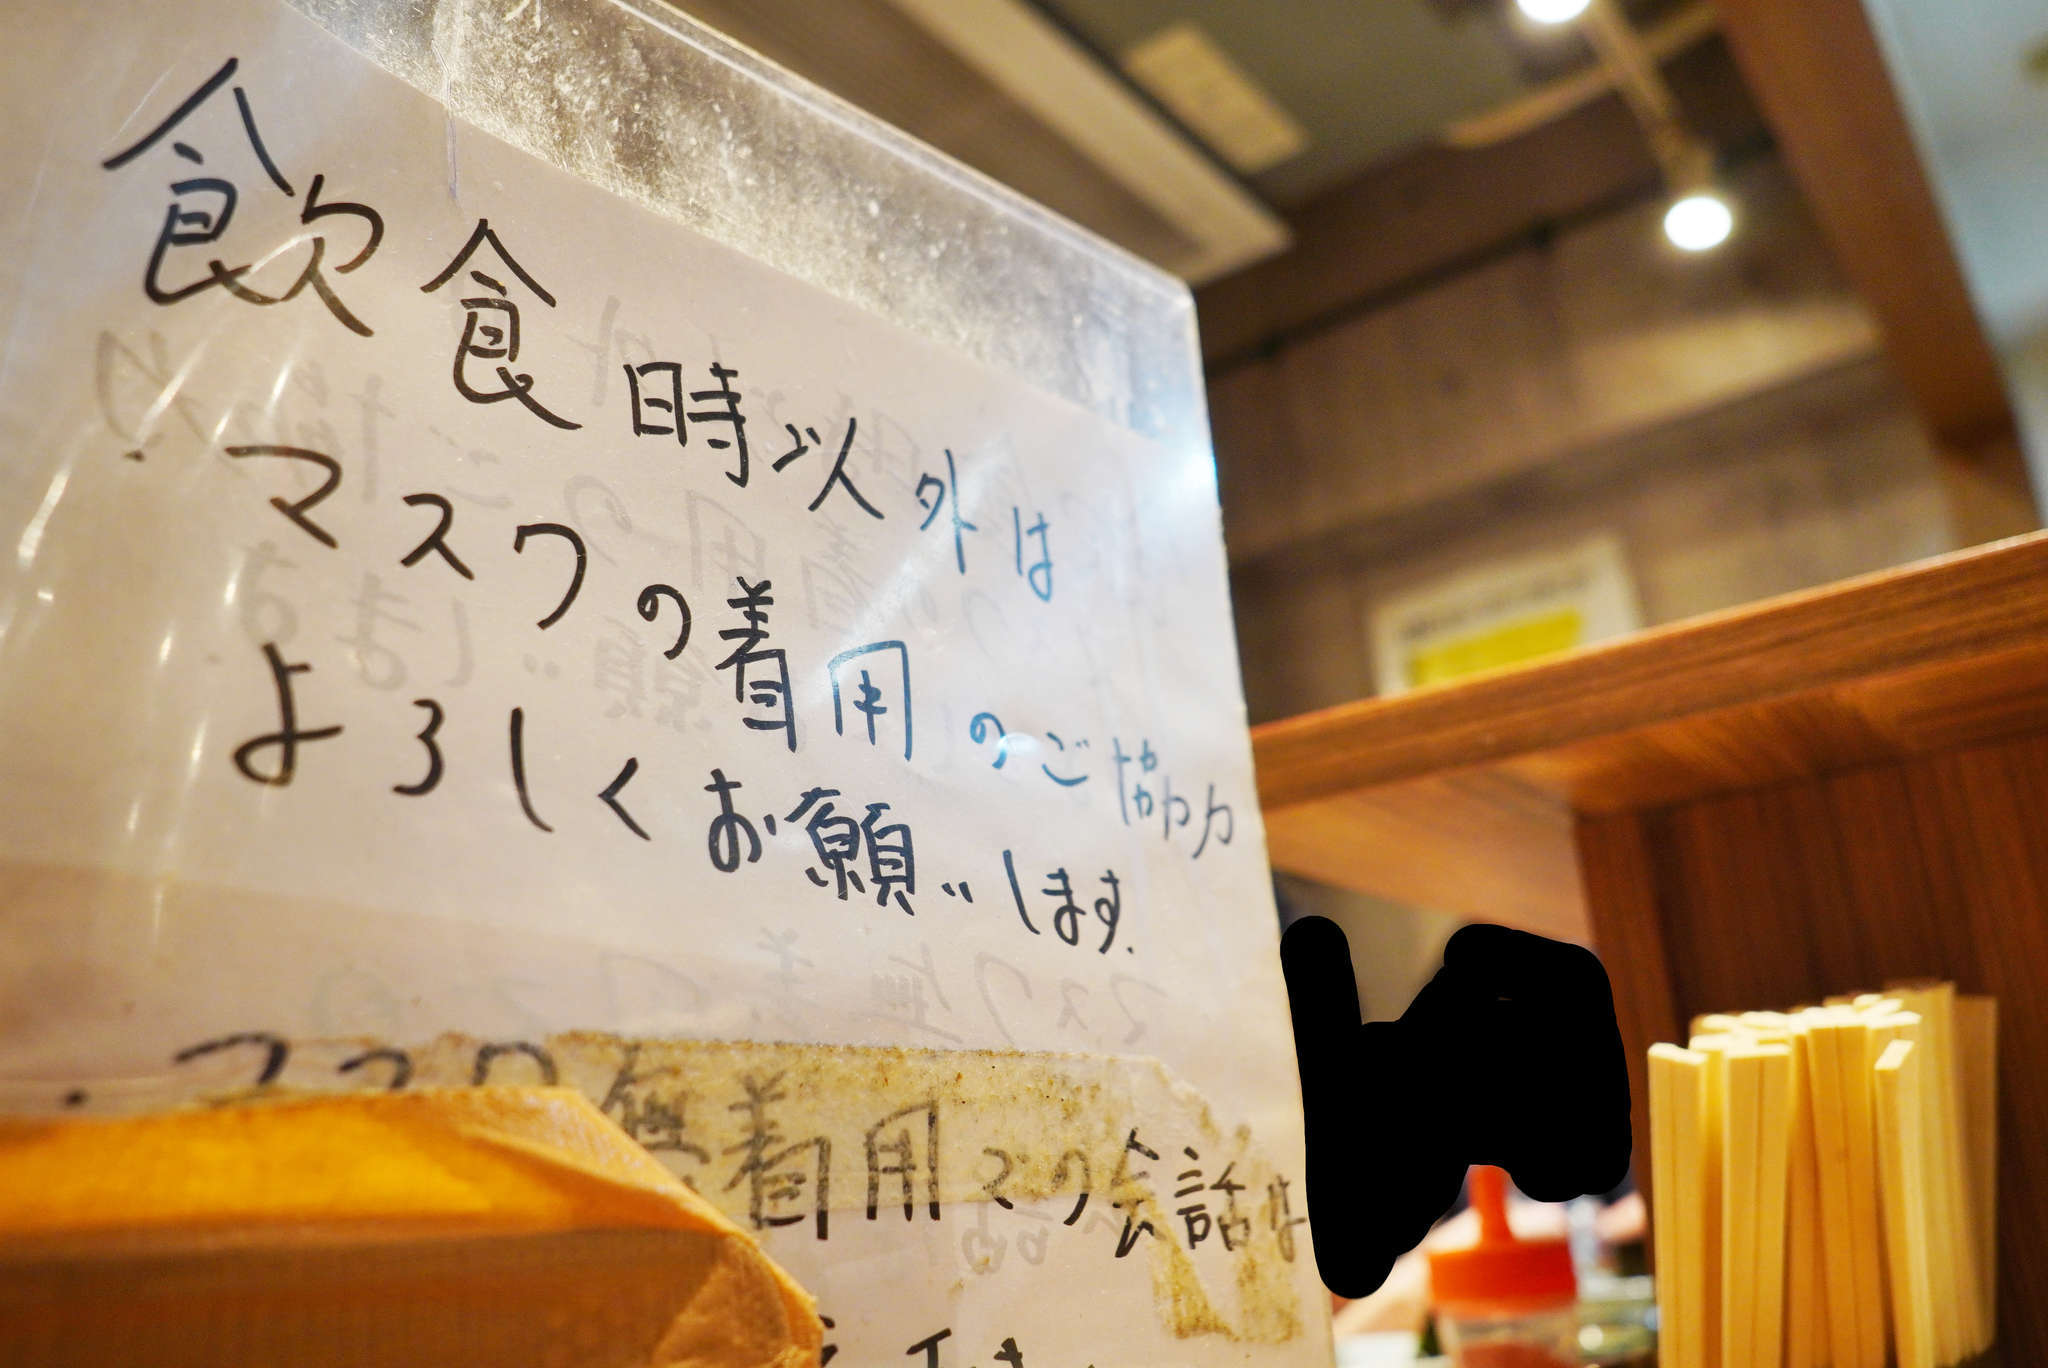 飲食時以外は
マスクの着用のご協力
よろしくお願いします.
・マスク無着用での会話は